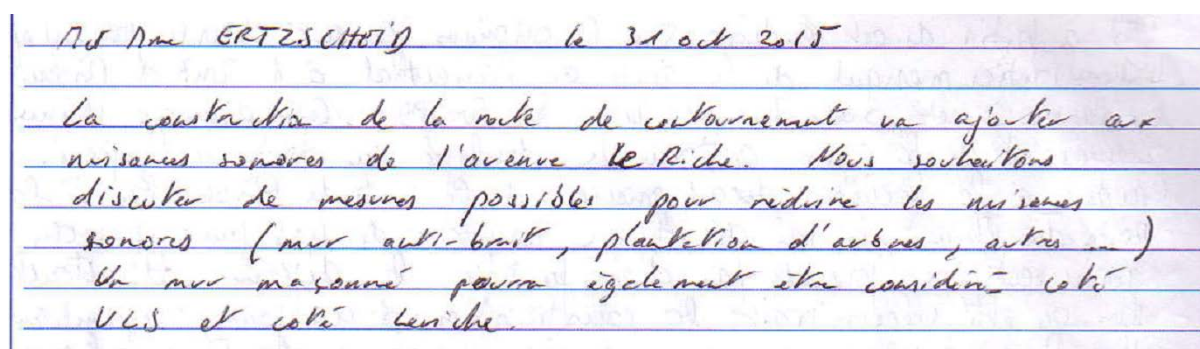 M et Mme ERTZSCHEID le 31 oct 2015
La construction de la route de contournement va ajouter aux
nuisances sonores de l'avenue le Riche. Nous souhaitons
discuter de mesures possibles pour réduire les nuisances
sonores (mur anti-bruit, plantation d'arbres, autres ...)
Un mur maçonné pourra également être considéré coté
VLS et coté Leriche.